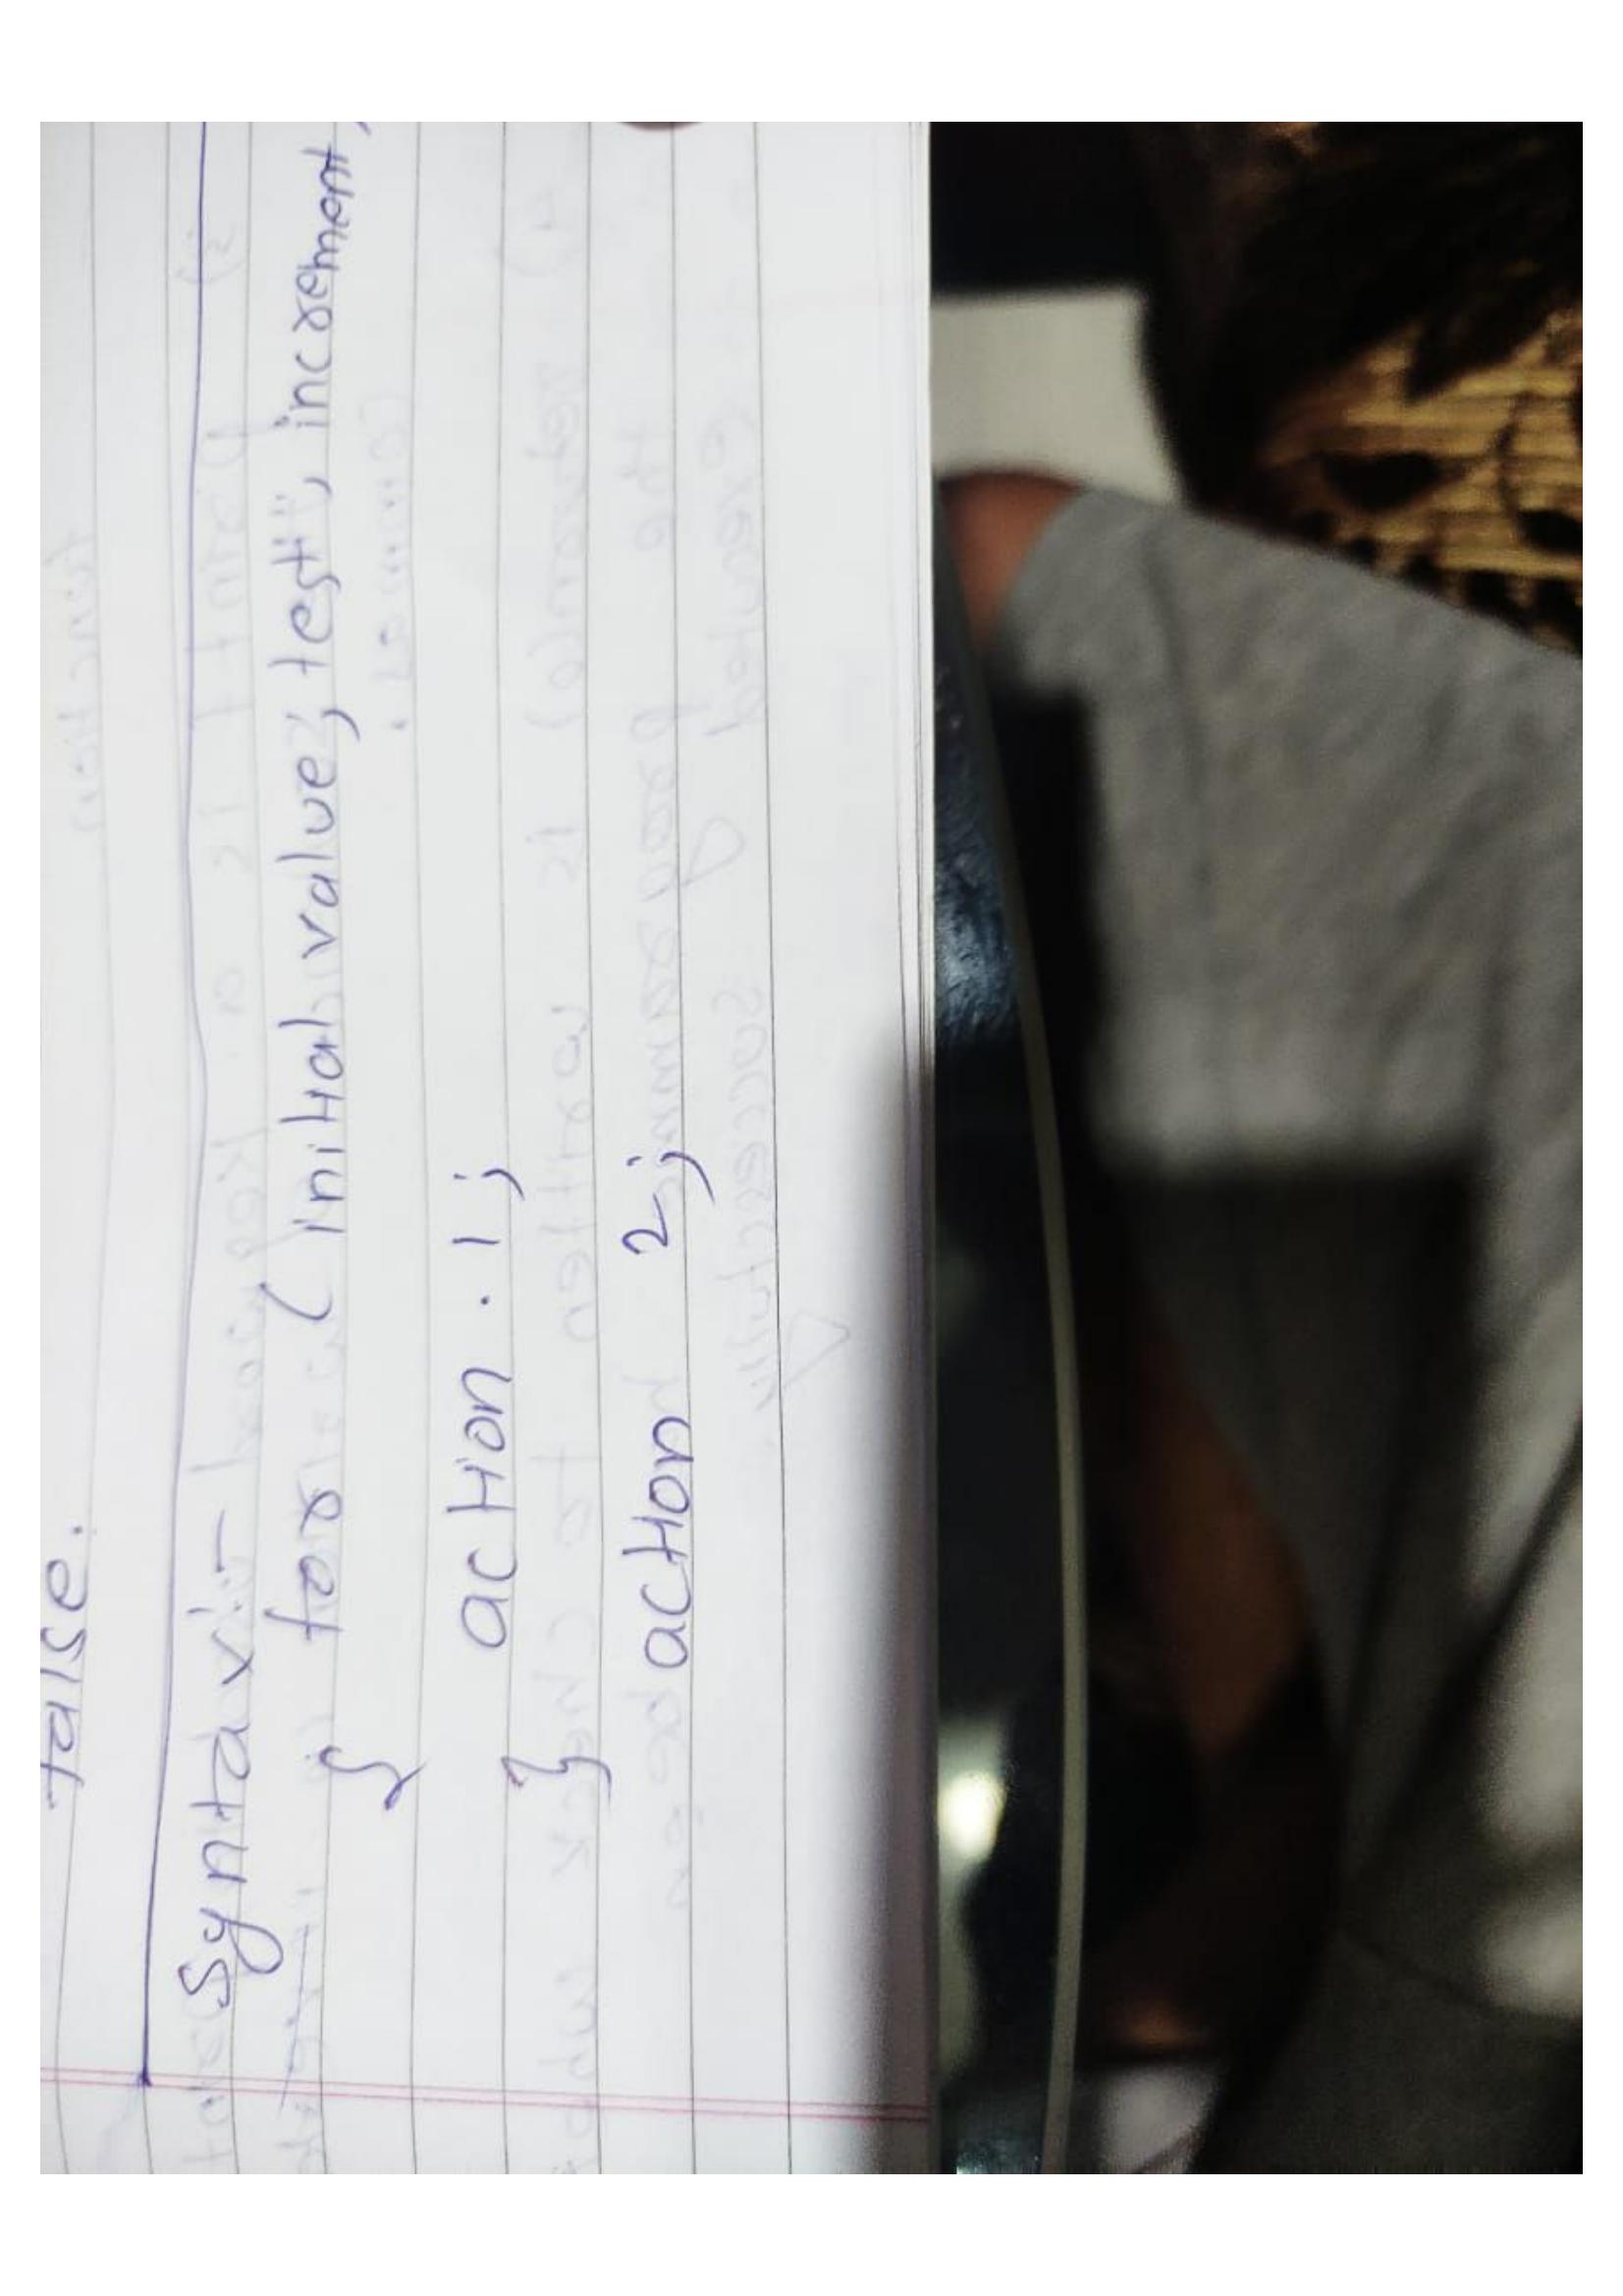 false.
Syntax :-
for ( initial value ; test ; increment
{
action . 1 ;
}
action 2 ;